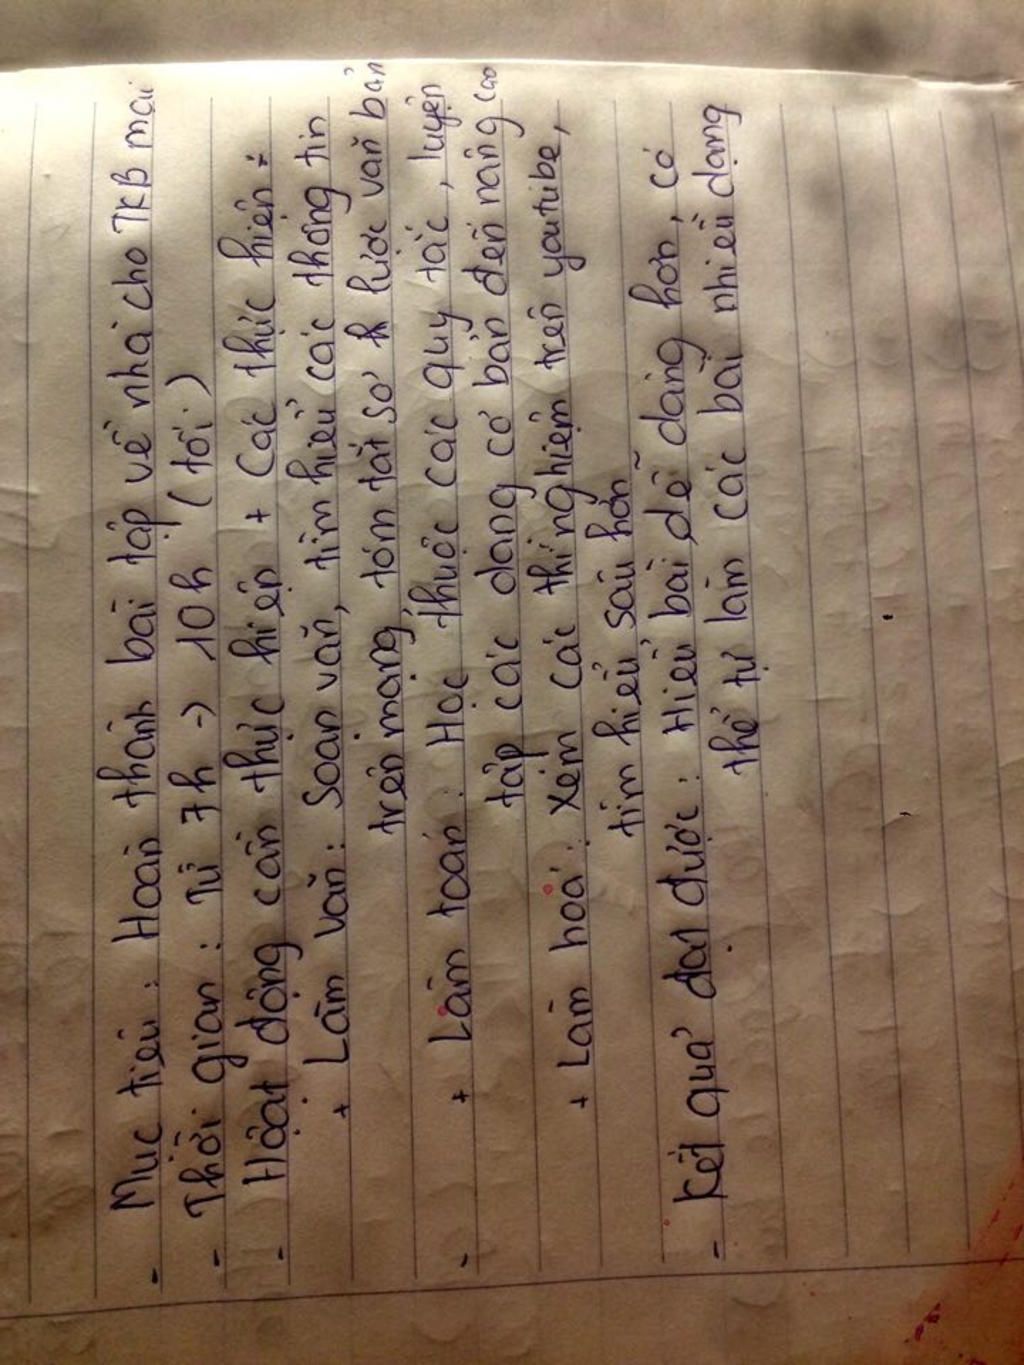 - Mục tiêu : Hoàn thành bài tập về nhà cho TKB mai
- Thời gian : Từ 7h -> 10h (tối)
- Hoạt động cần thực hiện + Các thực hiện :
+ Làm văn : Soạn văn, tìm hiểu các thông tin
trên mạng, tóm tắt sơ lược văn bản
+ Làm toán : Học thuộc các quy tắc, luyện
tập các dạng cơ bản đến nâng cao
+ Làm hoá : Xem các thí nghiệm trên youtube,
tìm hiểu sâu hơn
- Kết quả đạt được : Hiểu bài dễ dàng hơn, có
thể tự làm các bài nhiều dạng